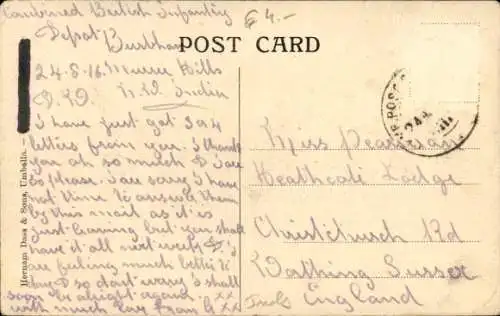 Combined British Infantry
Depot Burbhan
24-8-16. Murree Hills
N.W. India
I have just got 3 or 4
letters from you. I thank
you oh so much D. I are
so please. I are sorry I have
not time to answer them
by this mail as it is
just leaving but you shall
have it all next week. D. I's
are feeling much better to
day D so dont worry I shall
soon be alright again. xx
with much love from G xx
£ 4.-
POST CARD
Hernam Dass & Sons, Umballa.
24 A
Miss Pearman
Heathcote Lodge
Christchurch Rd
Worthing Sussex
England